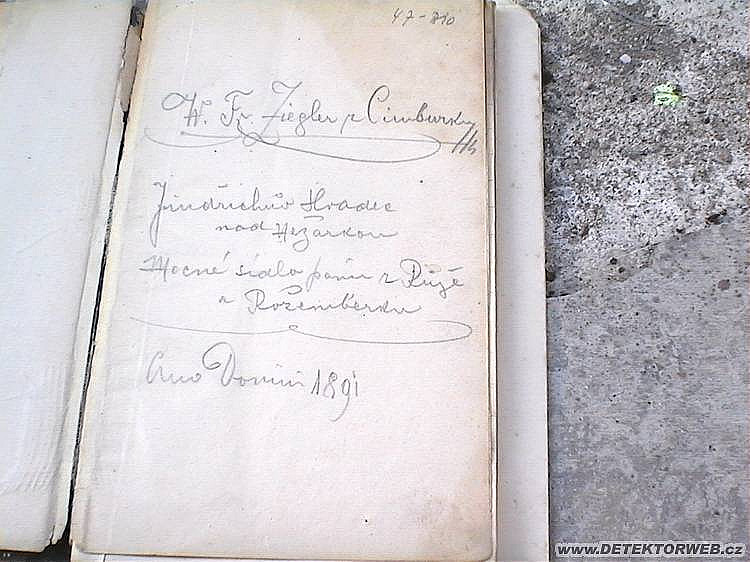 47-810
W. Fr. Ziegler z Cimburku
Jindřichův Hradec
nad Nežárkou
Mocné sídlo pánův z Růže
a Rožemberku
Ano Domini 1891
www.DETEKTORWEB.cz